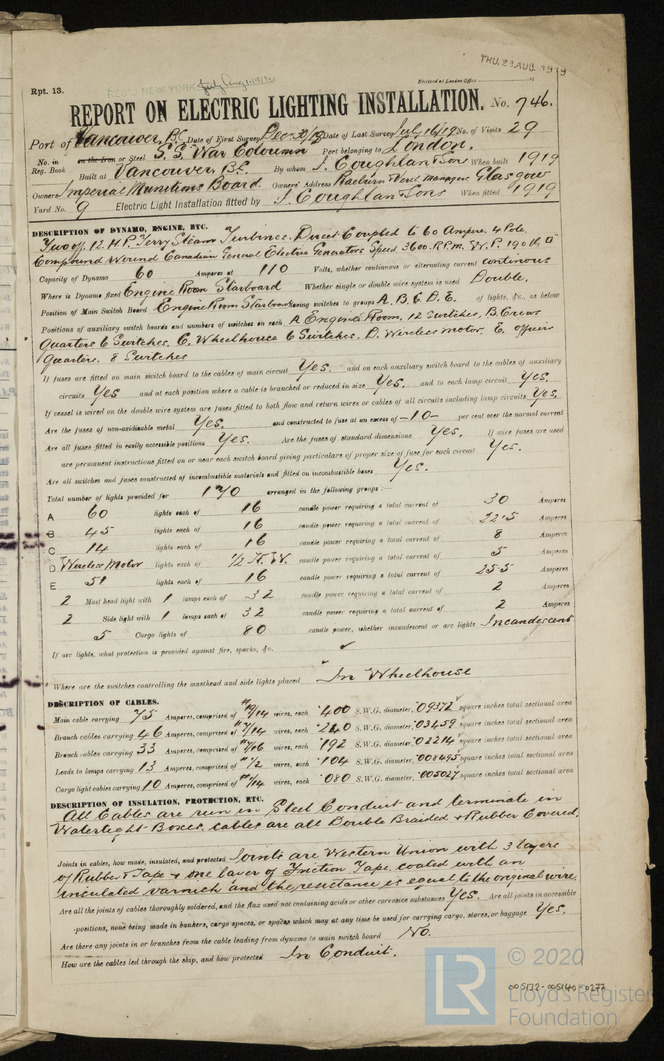 THU. 21 AUG. 1919
Rpt. 13.
REC'D NEW YORK
Received at London Office
REPORT ON ELECTRIC LIGHTING INSTALLATION. No. 746.
Port of Vancouver B.C. Date of First Survey Dec 30/18 Date of Last Survey July 16/19 No. of Visits 29
No. in Reg. Book on the Iron or Steel S.S. War Column Port belonging to London.
Built at Vancouver B.C. By whom J. Coughlan & Son When built 1919
Owners Imperial Munitions Board. Owners' Address Raeburn & Verel managers Glasgow
Yard No. 9 Electric Light Installation fitted by J. Coughlan & Sons When fitted 1919
DESCRIPTION OF DYNAMO, ENGINE, ETC.
Two off, 12 H.P. Terry Steam Turbines. Direct Coupled to 60 Ampere, 4 Pole.
Compound Wound Canadian General Electric Generators Speed 3600 R.P.M. W.P. 190 lb □"
Capacity of Dynamo 60 Amperes at 110 Volts, whether continuous or alternating current continous
Where is Dynamo fixed Engine Room Starboard Whether single or double wire system is used Double.
Position of Main Switch Board Engine Room Starboard having switches to groups A. B. C. D. E. of lights, &c., as below
Positions of auxiliary switch boards and numbers of switches on each A Engine Room, 12 Switches, B. Crews
Quarters 6 Switches, C. Wheelhouse 6 Switches, D. Wireless motor, E. officers
Quarters. 8 Switches
If fuses are fitted on main switch board to the cables of main circuit Yes. and on each auxiliary switch board to the cables of auxiliary
circuits Yes and at each position where a cable is branched or reduced in size Yes. and to each lamp circuit Yes.
If vessel is wired on the double wire system are fuses fitted to both flow and return wires or cables of all circuits including lamp circuits Yes.
Are the fuses of non-oxidizable metal Yes. and constructed to fuse at an excess of -10- per cent over the normal current
Are all fuses fitted in easily accessible positions Yes. Are the fuses of standard dimensions Yes. If wire fuses are used
are permanent instructions fitted on or near each switch board giving particulars of proper size of fuse for each circuit Yes.
Are all switches and fuses constructed of incombustible materials and fitted on incombustible bases Yes.
Total number of lights provided for 170 arranged in the following groups :—
A 60 lights each of 16 candle power requiring a total current of 30 Amperes
B 45 lights each of 16 candle power requiring a total current of 22.5 Amperes
C 14 lights each of 16 candle power requiring a total current of 8 Amperes
D Wireless Motor lights each of 1/2 K.W. candle power requiring a total current of 5 Amperes
E 51 lights each of 16 candle power requiring a total current of 25.5 Amperes
2 Mast head light with 1 lamps each of 32 candle power requiring a total current of 2 Amperes
2 Side light with 1 lamps each of 32 candle power requiring a total current of 2 Amperes
5 Cargo lights of 80 candle power, whether incandescent or arc lights Incandescent
If arc lights, what protection is provided against fire, sparks, &c. ✓
Where are the switches controlling the masthead and side lights placed In Wheelhouse
DESCRIPTION OF CABLES.
Main cable carrying 75 Amperes, comprised of 19/14 wires, each .400 S.W.G. diameter, .09372 square inches total sectional area
Branch cables carrying 46 Amperes, comprised of 7/14 wires, each .240 S.W.G. diameter, .03459 square inches total sectional area
Branch cables carrying 33 Amperes, comprised of 7/16 wires, each .192 S.W.G. diameter, .02214 square inches total sectional area
Leads to lamps carrying 13 Amperes, comprised of 1/12 wires, each .104 S.W.G. diameter, .008495 square inches total sectional area
Cargo light cables carrying 10 Amperes, comprised of 1/14 wires, each .080 S.W.G. diameter, .005027 square inches total sectional area
DESCRIPTION OF INSULATION, PROTECTION, ETC.
All Cables are run in Steel Conduit and terminate in
Watertight Boxes. Cables are all Double Braided & Rubber Covered.
Joints in cables, how made, insulated, and protected Joints are Western Union with 3 layers
of Rubber & Tape & one layer of Friction Tape. coated with an
insulated varnish and the resistance is equal to the original wire.
Are all the joints of cables thoroughly soldered, and the flux used not containing acids or other corrosive substances Yes. Are all joints in accessible
positions, none being made in bunkers, cargo spaces, or spaces which may at any time be used for carrying cargo, stores, or baggage Yes.
Are there any joints in or branches from the cable leading from dynamo to main switch board No.
How are the cables led through the ship, and how protected In Conduit.
© 2020
LR
Lloyd's Register
Foundation
005132-005140-0277